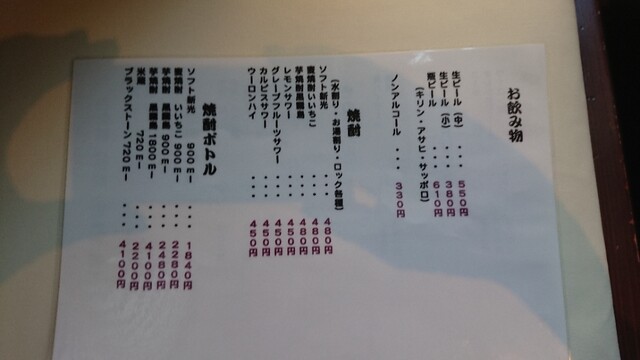 お飲み物
生ビール（中）・・・550円
生ビール（小）・・・380円
瓶ビール・・・610円
（キリン・アサヒ・サッポロ）
ノンアルコール・・・330円
焼酎
（水割り・お湯割り・ロック各種）
ソフト新光・・・480円
麦焼酎いいちこ・・・480円
芋焼酎黒霧島・・・480円
レモンサワー・・・450円
グレープフルーツサワー・・・450円
カルピスサワー・・・450円
ウーロンハイ・・・450円
焼酎ボトル
ソフト新光 900ml・・・1840円
麦焼酎 いいちこ 900ml・・・2280円
芋焼酎 黒霧島 900ml・・・2480円
芋焼酎 黒霧島 1800ml・・・4100円
米 720ml・・・2200円
ブラックストーン 720ml・・・4100円